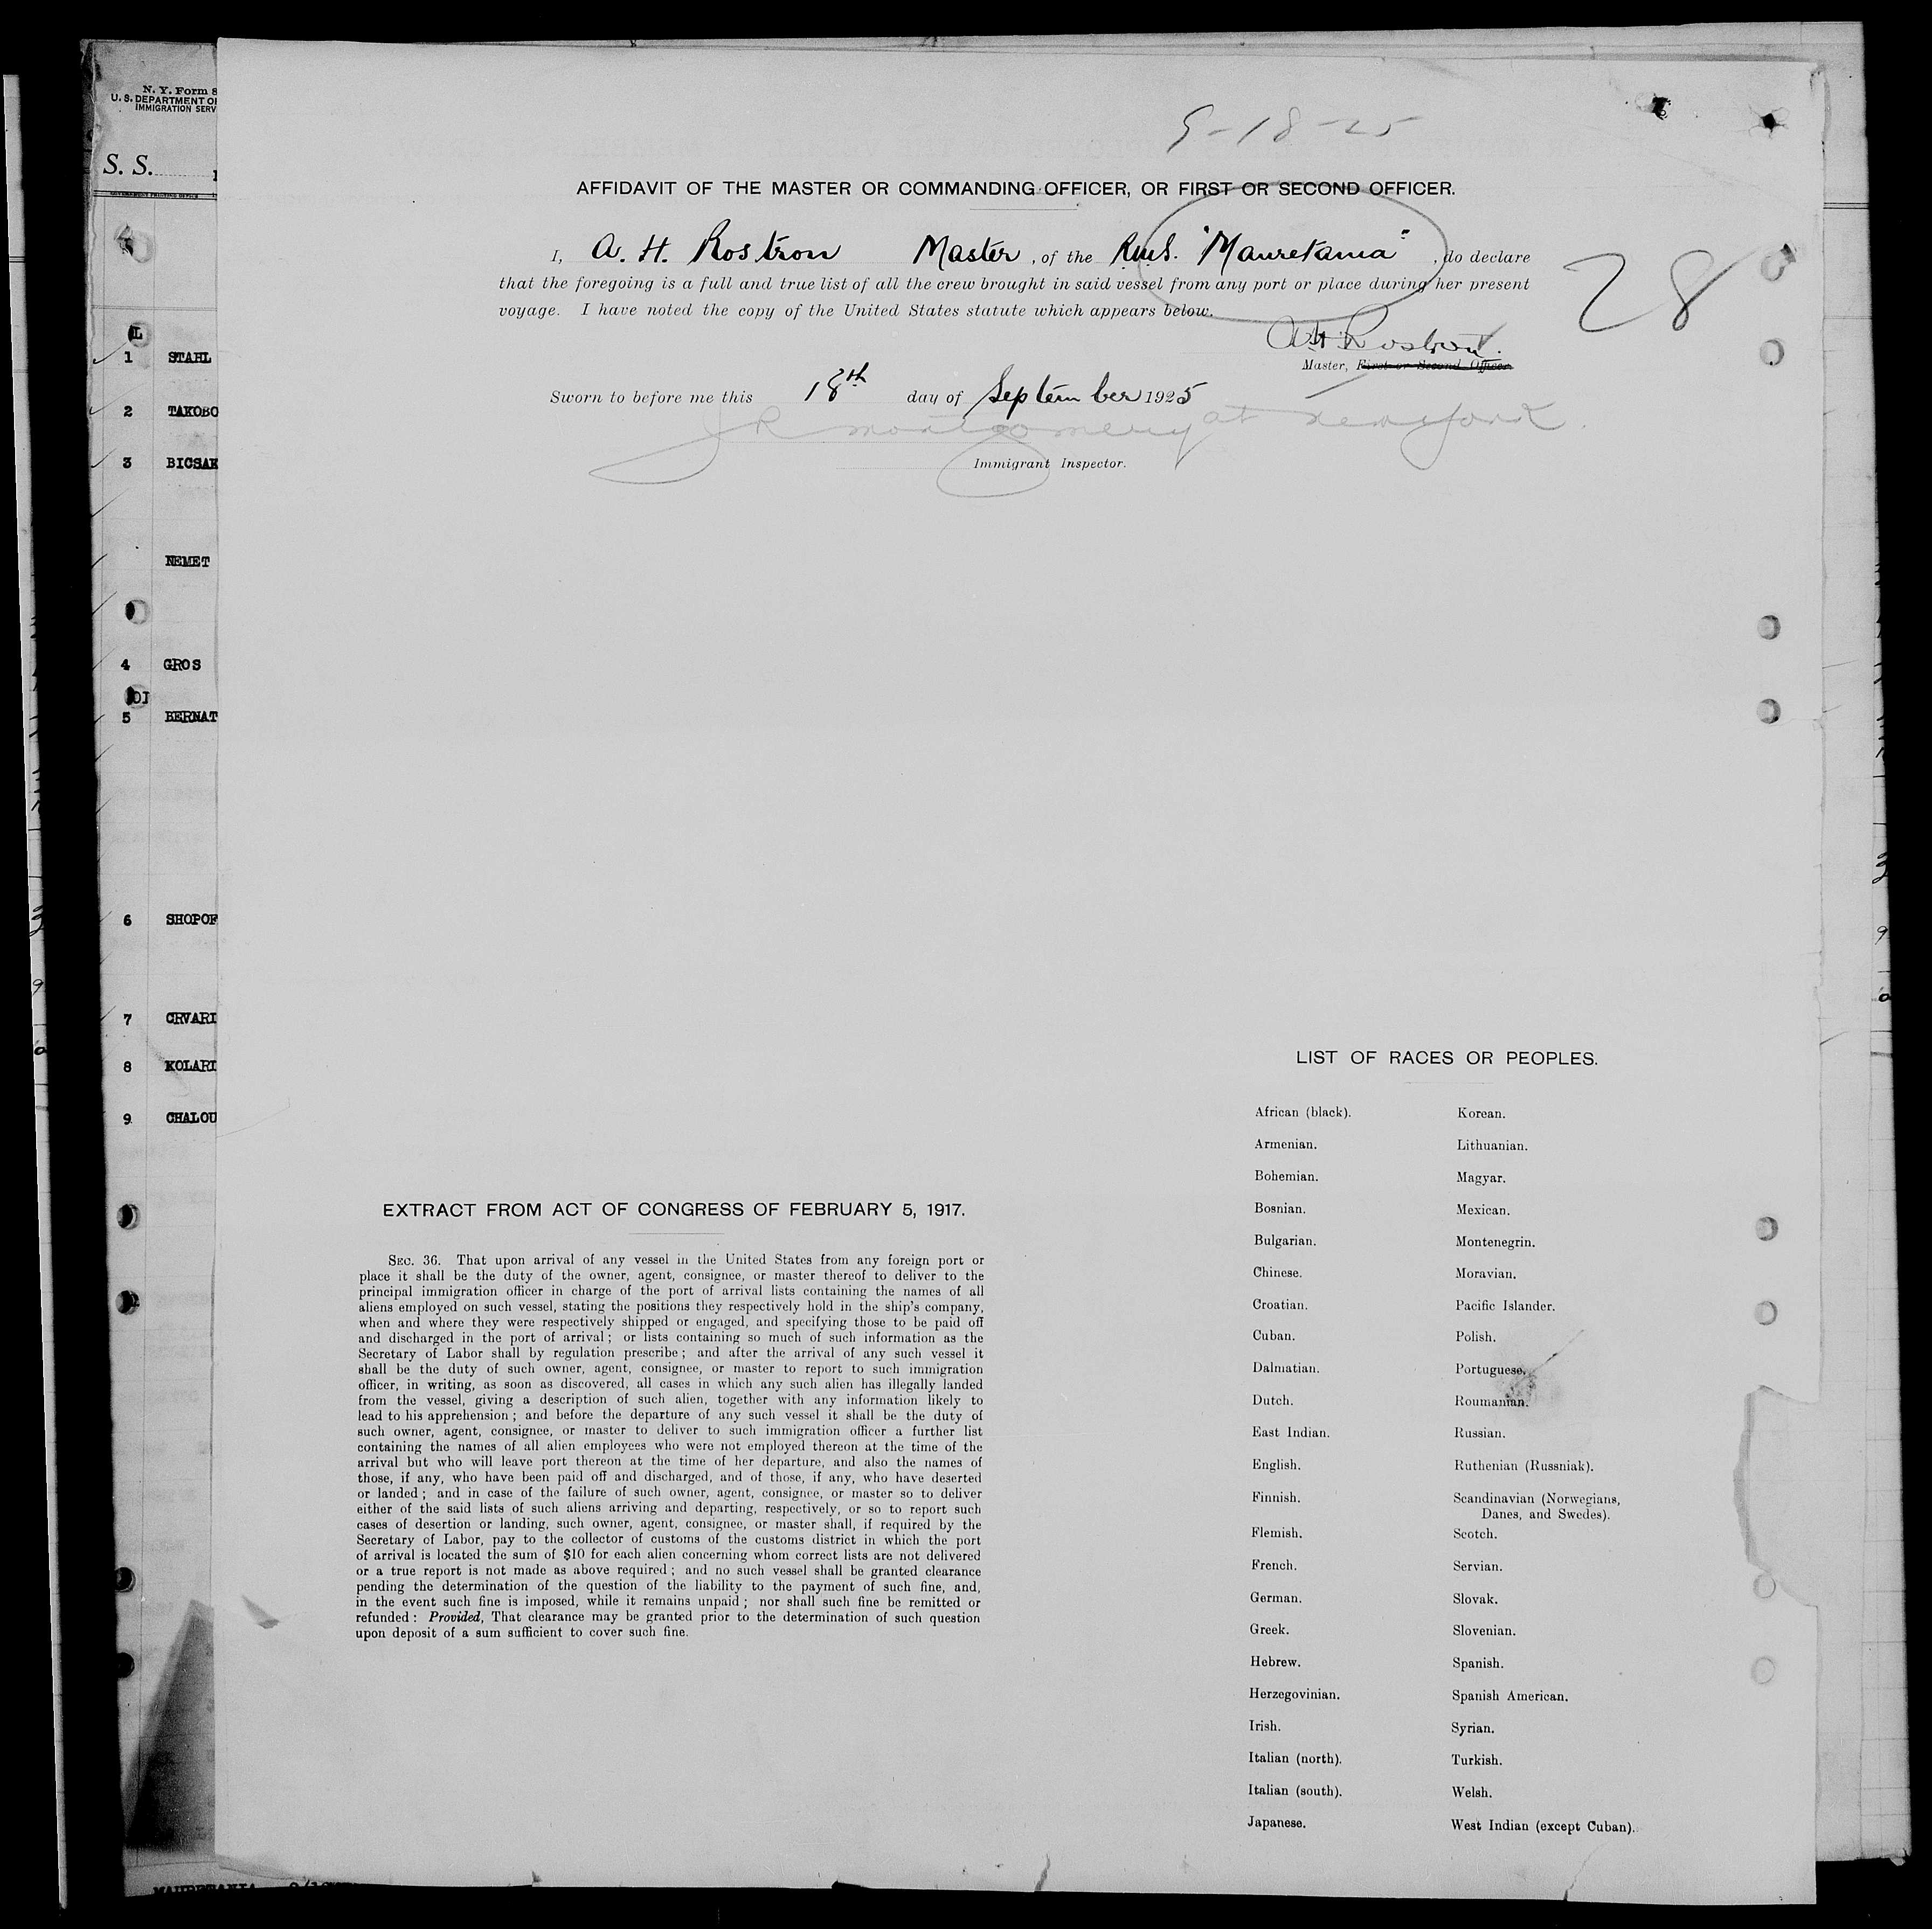 N. Y. Form 8
U. S. DEPARTMENT OF
IMMIGRATION SERV
S. S.
L
1 STAHL
2 TAKOBO
3 BICSAK
NEMET
4 GROS
5 BERNAT
6 SHOPOF
7 CRVARI
8 KOLARI
9 CHALOU
9-18-25
AFFIDAVIT OF THE MASTER OR COMMANDING OFFICER, OR FIRST OR SECOND OFFICER.
I, A. H. Rostron Master, of the R.M.S. "Mauretania", do declare
that the foregoing is a full and true list of all the crew brought in said vessel from any port or place during her present
voyage. I have noted the copy of the United States statute which appears below.
28
A H Rostron.
Master, First or Second Officer.
Sworn to before me this 18th day of September 1925
J R Montgomery at New York.
Immigrant Inspector.
EXTRACT FROM ACT OF CONGRESS OF FEBRUARY 5, 1917.
SEC. 36. That upon arrival of any vessel in the United States from any foreign port or
place it shall be the duty of the owner, agent, consignee, or master thereof to deliver to the
principal immigration officer in charge of the port of arrival lists containing the names of all
aliens employed on such vessel, stating the positions they respectively hold in the ship's company,
when and where they were respectively shipped or engaged, and specifying those to be paid off
and discharged in the port of arrival; or lists containing so much of such information as the
Secretary of Labor shall by regulation prescribe; and after the arrival of any such vessel it
shall be the duty of such owner, agent, consignee, or master to report to such immigration
officer, in writing, as soon as discovered, all cases in which any such alien has illegally landed
from the vessel, giving a description of such alien, together with any information likely to
lead to his apprehension; and before the departure of any such vessel it shall be the duty of
such owner, agent, consignee, or master to deliver to such immigration officer a further list
containing the names of all alien employees who were not employed thereon at the time of the
arrival but who will leave port thereon at the time of her departure, and also the names of
those, if any, who have been paid off and discharged, and of those, if any, who have deserted
or landed; and in case of the failure of such owner, agent, consignee, or master so to deliver
either of the said lists of such aliens arriving and departing, respectively, or so to report such
cases of desertion or landing, such owner, agent, consignee, or master shall, if required by the
Secretary of Labor, pay to the collector of customs of the customs district in which the port
of arrival is located the sum of $10 for each alien concerning whom correct lists are not delivered
or a true report is not made as above required; and no such vessel shall be granted clearance
pending the determination of the question of the liability to the payment of such fine, and,
in the event such fine is imposed, while it remains unpaid; nor shall such fine be remitted or
refunded: Provided, That clearance may be granted prior to the determination of such question
upon deposit of a sum sufficient to cover such fine.
LIST OF RACES OR PEOPLES.
African (black).
Armenian.
Bohemian.
Bosnian.
Bulgarian.
Chinese.
Croatian.
Cuban.
Dalmatian.
Dutch.
East Indian.
English.
Finnish.
Flemish.
French.
German.
Greek.
Hebrew.
Herzegovinian.
Irish.
Italian (north).
Italian (south).
Japanese.
Korean.
Lithuanian.
Magyar.
Mexican.
Montenegrin.
Moravian.
Pacific Islander.
Polish.
Portuguese.
Roumanian.
Russian.
Ruthenian (Russniak).
Scandinavian (Norwegians,
Danes, and Swedes).
Scotch.
Servian.
Slovak.
Slovenian.
Spanish.
Spanish American.
Syrian.
Turkish.
Welsh.
West Indian (except Cuban).